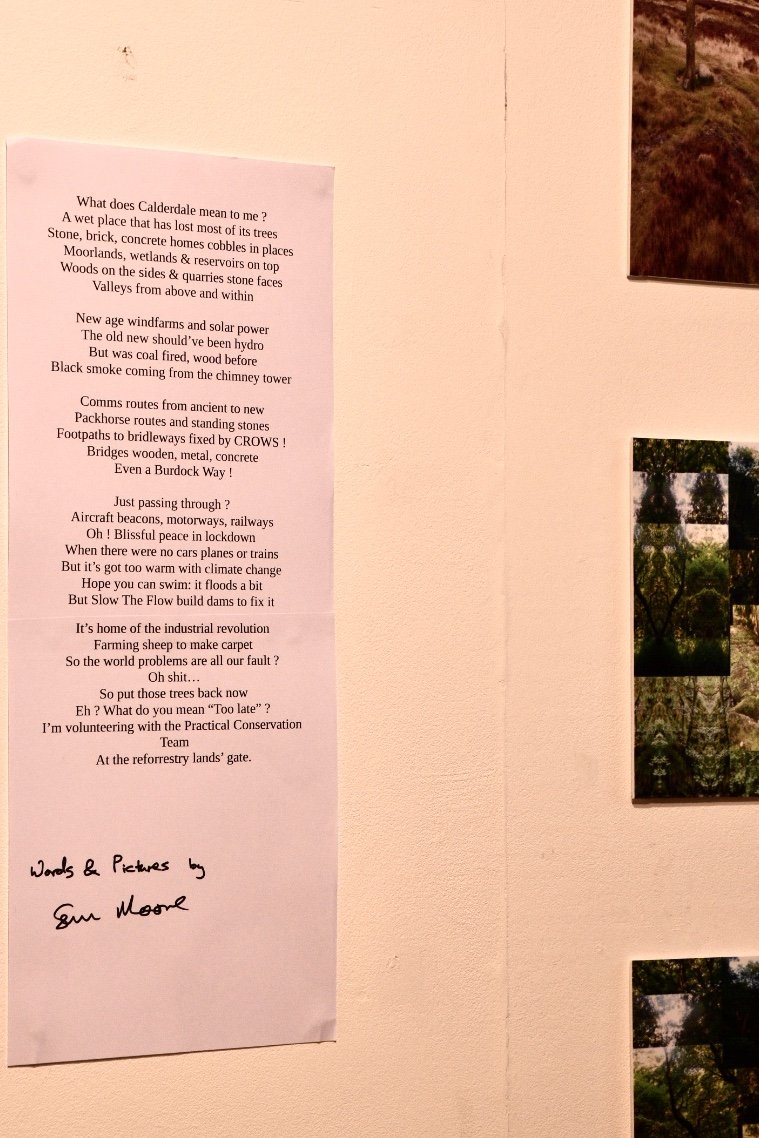 What does Calderdale mean to me ?
A wet place that has lost most of its trees
Stone, brick, concrete homes cobbles in places
Moorlands, wetlands & reservoirs on top
Woods on the sides & quarries stone faces
Valleys from above and within
New age windfarms and solar power
The old new should've been hydro
But was coal fired, wood before
Black smoke coming from the chimney tower
Comms routes from ancient to new
Packhorse routes and standing stones
Footpaths to bridleways fixed by CROWS !
Bridges wooden, metal, concrete
Even a Burdock Way !
Just passing through ?
Aircraft beacons, motorways, railways
Oh ! Blissful peace in lockdown
When there were no cars planes or trains
But it's got too warm with climate change
Hope you can swim: it floods a bit
But Slow The Flow build dams to fix it
It's home of the industrial revolution
Farming sheep to make carpet
So the world problems are all our fault ?
Oh shit…
So put those trees back now
Eh ? What do you mean “Too late” ?
I'm volunteering with the Practical Conservation
Team
At the reforrestry lands' gate.
Words & Pictures by
Moore